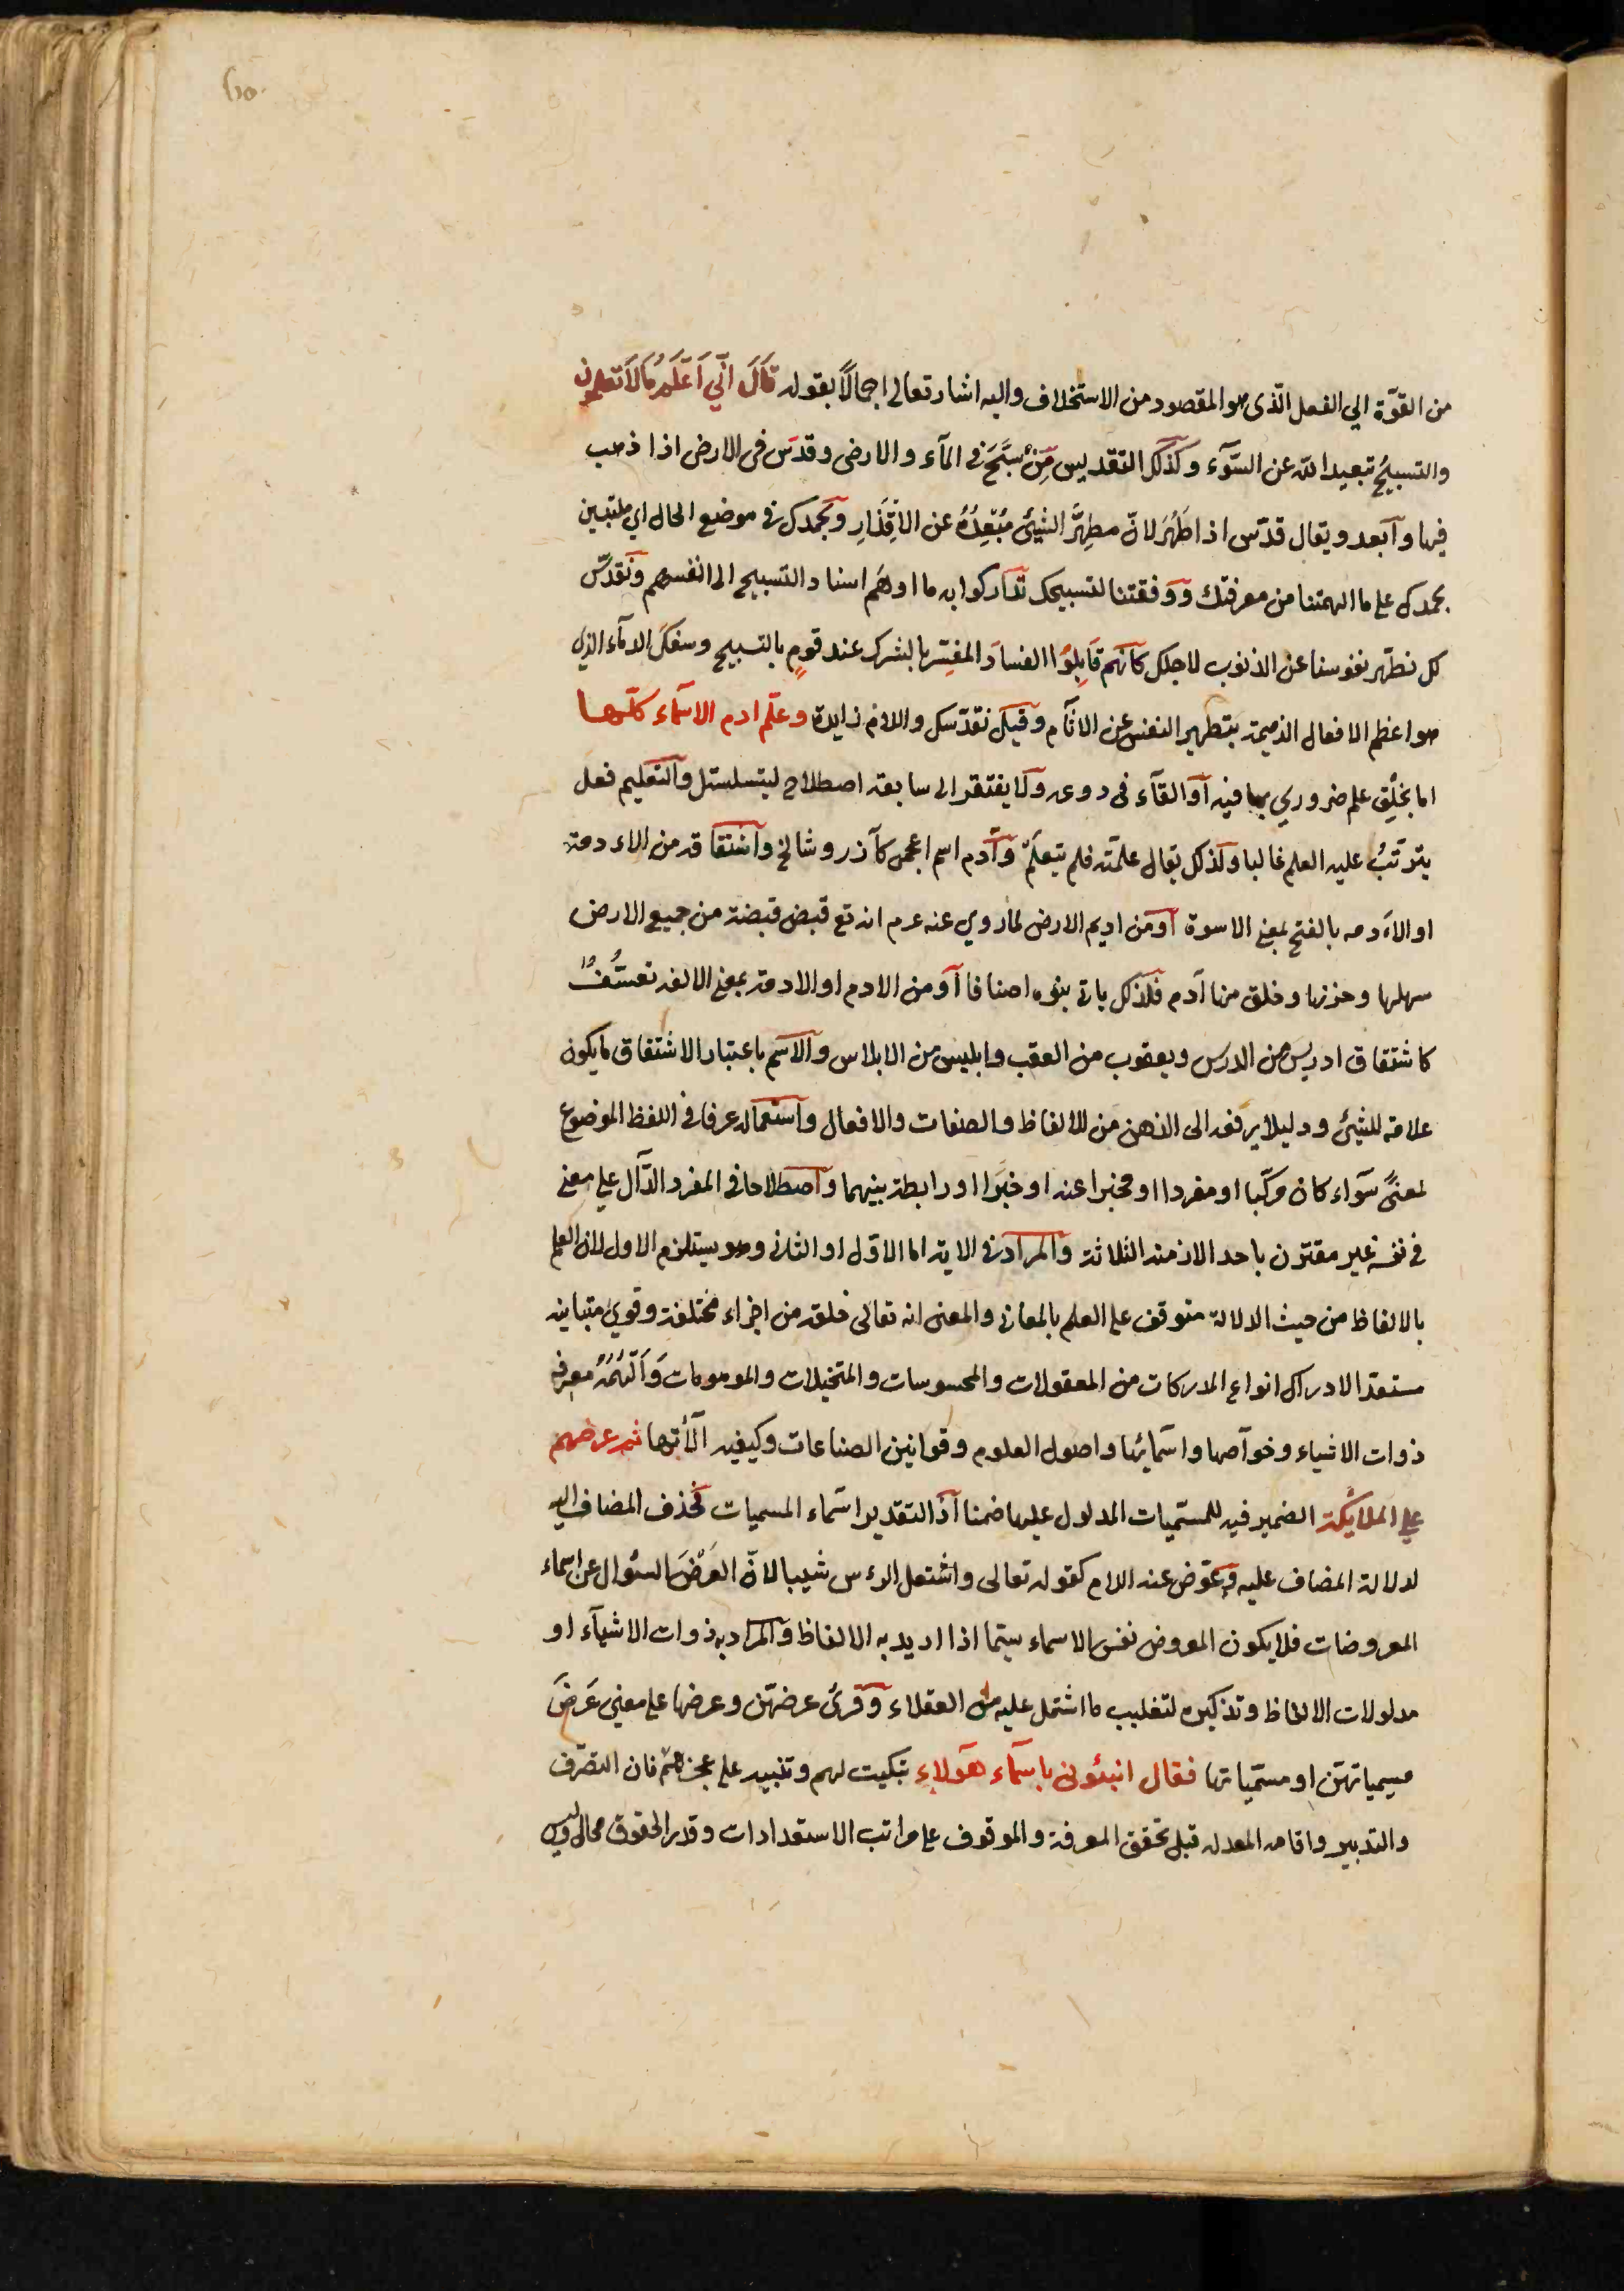 من القوّة الي الفعل الّذى هو المقصود من الاستخلاف واليه اشار تعالى اجمالاً بقوله قَالَ اِنِّي اَعْلَمُ مَالَا تَعْلَمُونَ
والتسبيحُ تبعيد الله عن السّوٓء وكذلك التقديس مِنْ سَبَّحَ في المآء والارض وقدّس فى الارض اذا ذهب
فيها وابعد ويقال قدّس اذا طَهَّرَ لانّ مطهِّرَ الشيئ مُبْعِدُهُ عن الاقذارِ وبحمدك في موضع الحال اي ملتبسين
بحمدك على ما الهمتنا من معرفتك ووفقتنا لتسبيحك تداركوا به ما اوهَم اسناد التسبيح الى انفسهم ونقدّس
لك نطهّر نفوسنا عن الذنوب لاجلك كانّهم قَابلوُا الفسادَ المفسّر بالشرك عند قومٍ بالتسبيح وسفك الدمآء الذي
هو اعظم الافعال الذميمة بتطهير النفس عن الاثآم وقيل نقدّسك واللام زايدة وعلّم ادم الاسمآء كلّها
اما بخلقِ علم ضروري بها فيه او القآء فى روعه ولا يفتقر الى سابقة اصطلاح ليتسلسل والتعليم فعل
يترتّبُ عليه العلم غالبا ولذلك يقال علّمته فلم يتعلّم وآدم اسم اعجمى كآذر وشالخ واشتقاقه من الادمة
او الاَدمه بالفتح بمعنى الاسوة او من اديم الارض لما روي عنه عم انه تع قبض قبضة من جميع الارض
سهلها وحزنها وخلق منها آدم فلذلك ياتى بنوه اصنافا او من الادم او الادمة بمعنى الالفه تعسُّفٌ
كاشتقاق ادريس من الدرس ويعقوب من العقب وابليس من الابلاس والاسم باعتبار الاشتقاق مايكون
علامة للشيئ ودليلا يرفعه الى الذهن من الالفاظ والصفات والافعال واستعماله عرفا فى اللفظ الموضوع
لمعنىً سوآء كان مركّبا او مفردا او مخبرا عنه او خبَرا او رابطة بينهما واصطلاحا فى المفرد الدّال على معنى
في نفسه غير مقترن باحد الازمنه الثلاثة والمراد في الاية اما الاوّل او الثانى وهو يستلزم الاول لان العلم
بالالفاظ من حيث الدلالة متوقف على العلم بالمعانى والمعنى انه تعالى خلقه من اجزاء مختلفة وقوي متباينه
مستعدا لادراك انواع المدركات من المعقولات والمحسوسات والمتخيلات والموهومات وَاَلْهَمَهُ معرفة
ذوات الاشياء وخوآصها واسمآئها واصول العلوم وقوانين الصناعات وكيفيه آلاتها ثم عرضهم
على الملائكة الضمير فيه للمسّميات المدلول عليها ضمنا اذ التقدير اسمآء المسميات فحذف المضاف اليه
لدلالة المضاف عليه وعوّض عنه اللام كقوله تعالى واشتعل الرءس شيبا لانّ العَرْضَ السئوال عن اسماء
المعروضات فلا يكون المعروض نفس الاسماء سيّما اذا اريد به الالفاظ والمراد به ذوات الاشيآء او
مدلولات الالفاظ وتذكيره لتغليب ما اشتمل عليه من العقلاء وقرئ عرضهنّ وعرضها على معنى عَرَضَ
مسمياتهنّ او مسمّياتها فقال انبئونى باسمآء هٓولاءِ تبكيت لهم وتنبيه على عجزهمْ فان التصّرف
والتدبير واقامه المعدله قبل تحقق المعرفة والوقوف على مراتب الاستعدادات وقدر الحقوق محال وليس